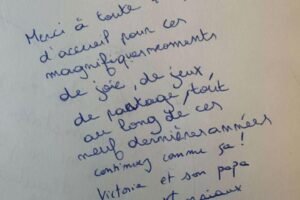 Merci à toute
d'accueil pour ces
magnifiques moments
de joie, de jeux,
de partage, tout
au long de ces
neuf dernières années
continuez comme ça !
Victoria et son papa